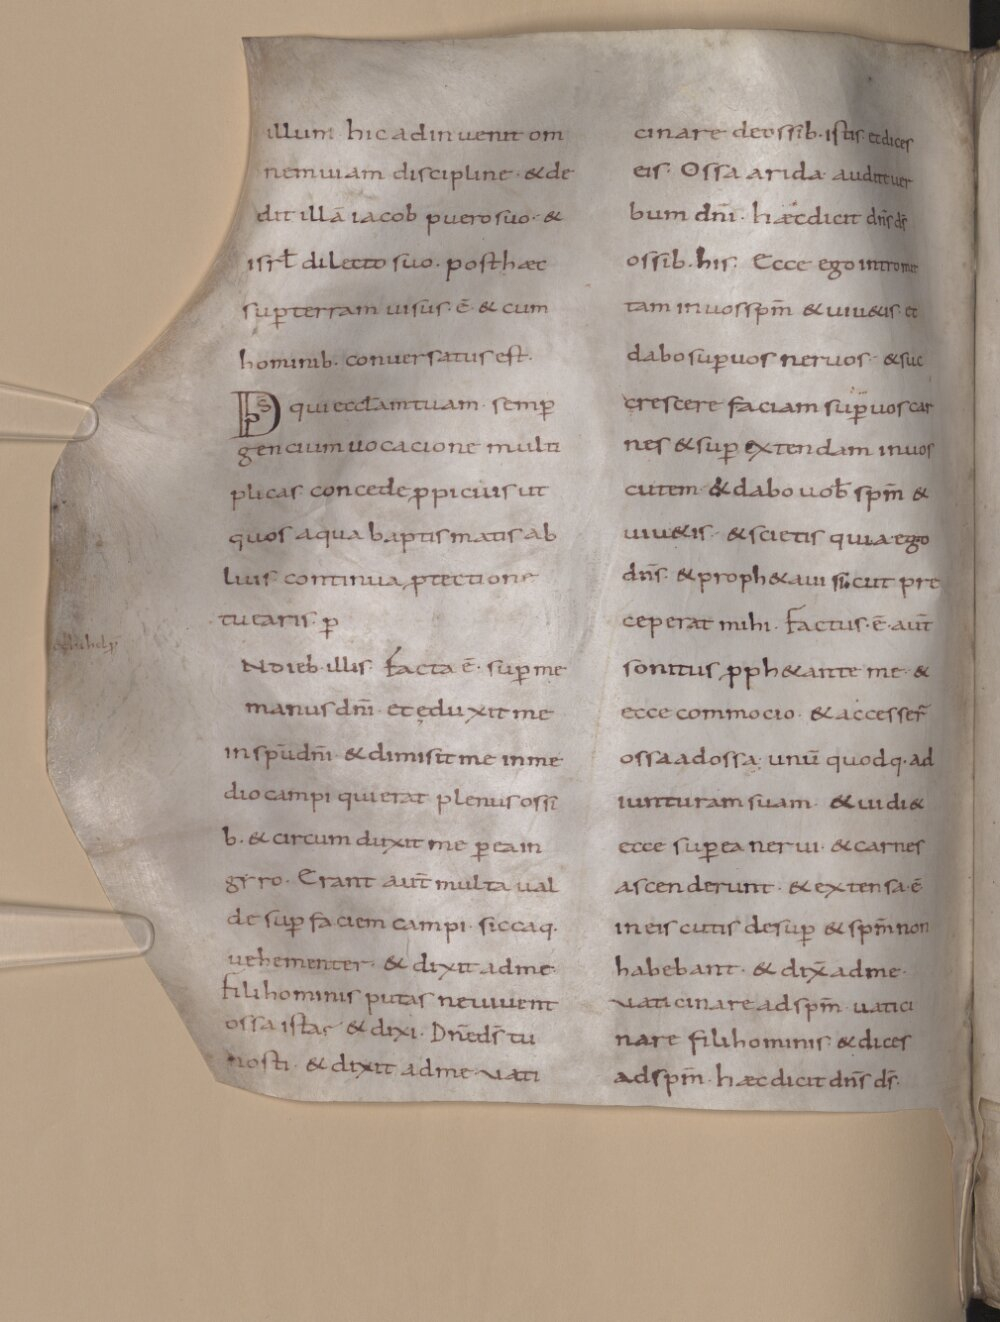 illum hic adinuenit om
nem uiam discipline· & de
dit illā iacob puero suo· &
isrƚ dilecto suo. post hæc
sup̄ terram uisus· ē· & cum
hominib· conuersatus est·
D̄s qui eccƚam tuam· semp̄
gencium uocacione multi
plicas concede ꝓpicius ut
quos aqua baptismatis ab
luis continua ꝓtectione
tutaris· ꝑ
N dieb· illis· facta ē· sup̄ me
manus dn̄i· et eduxit me
in spū dn̄i· & dimisit me in me
dio campi qui erat plenus ossi
b· & circumduxit me ꝑ ea in
gyro· Erant aut̄ multa ual
de sup̄ faciem campi· siccaq·
uehementer· & dixit ad me·
fili hominis putas ne uiuent
ossa istas· & dixi· Dn̄e ds̄ tu
nosti· & dixit ad me· uati
cinare de ossib· istis· et dices
eis· Ossa arida· audite uer
bum dn̄i· hæc dicit dn̄s ds̄
ossib· his· Ecce ego intromit
tam in uos spm̄ & uiu&is· et
dabo sup̄ uos neruos· & suc
crescere faciam sup̄ uos car
nes & sup̄ extendam in uos
cutem· & dabo uob̄ spm̄ &
uiu&is· & scietis quia ego
dn̄s· & proph&aui sicut pre
ceperat mihi· factus· ē· aut̄
sonitus ꝓph&ante me· &
ecce commocio· & accesser̄
ossa ad ossa· unū quodq· ad
iuncturam suam· & uidi &
ecce sup̄ ea nerui· & carnes
ascenderunt· & extensa· ē
in eis cutis desup̄ & spm̄ non
habebant· & dix̄ ad me·
uaticinare ad spm̄· uatici
nare fili hominis· & dices
ad spm̄· hæc dicit dn̄s ds̄·